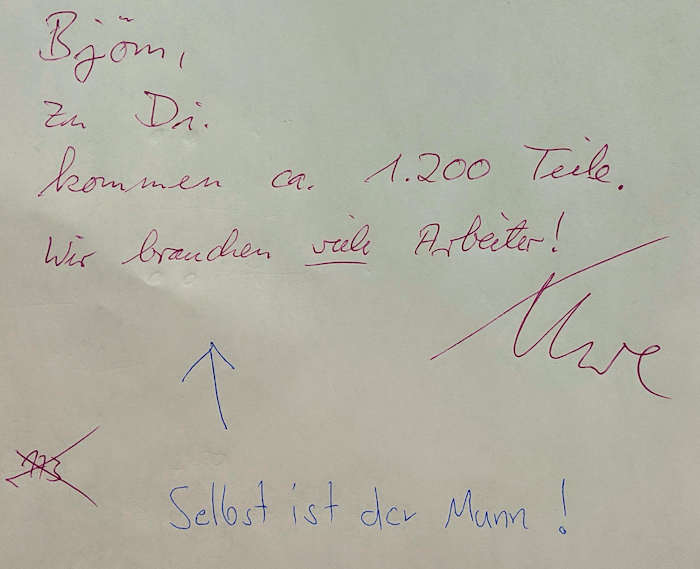 Björn,
zu Di.
kommen ca. 1.200 Teile.
Wir brauchen viele Arbeiter!
Uwe
113
Selbst ist der Mann!